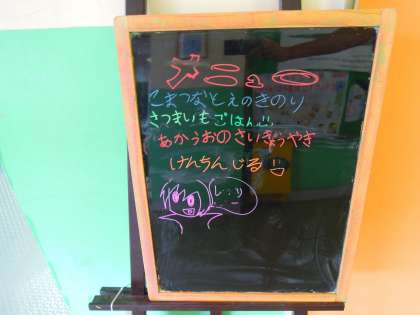 メニュー
こまつなとえのきのり
さつまいもごはん
あかうおのさいきょうやき
けんちんじる